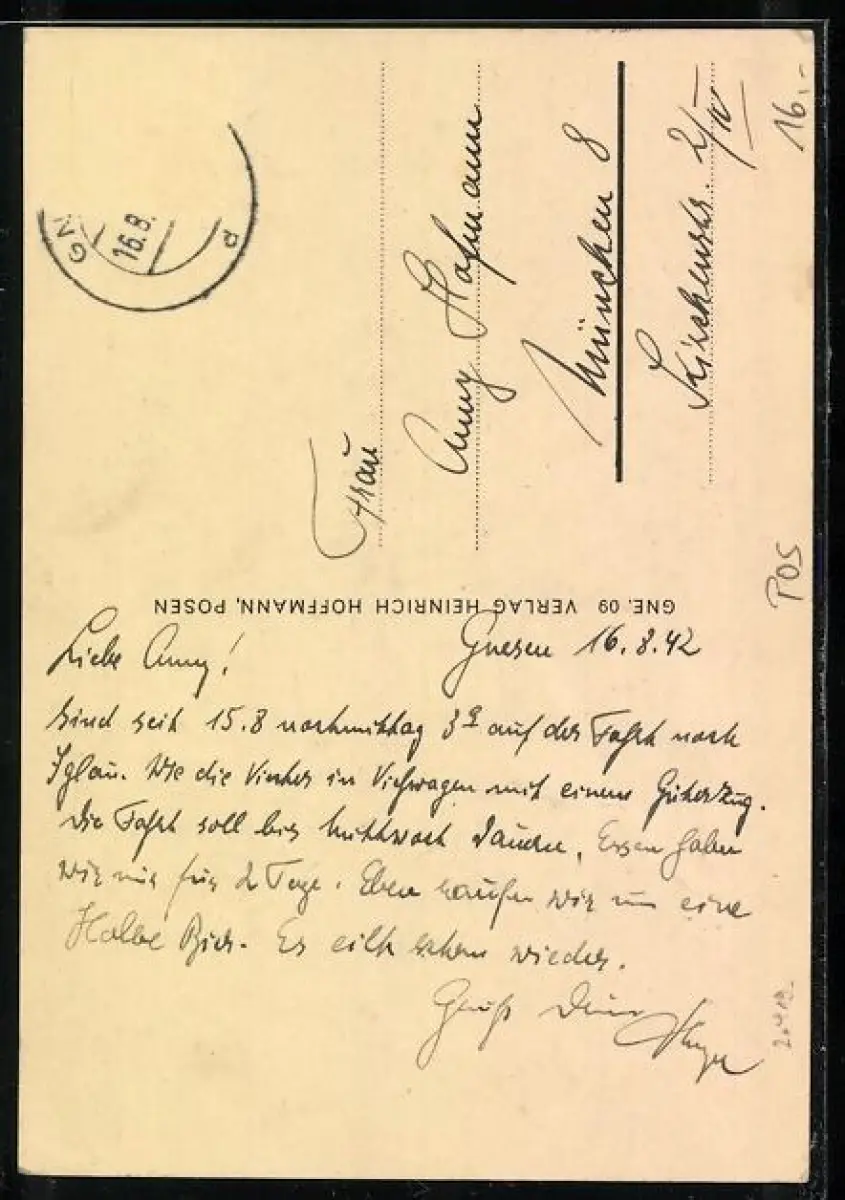 GN
16.8.
d
Frau
Anny Hofmann
München 8
Kirchenstr. 2/IV
16.-
POS
GNE. 09 VERLAG HEINRICH HOFFMANN, POSEN
Gnesen 16.8.42
Liebe Anny!
Sind seit 15.8 nachmittag 3 auf der Fahrt nach
Iglau. Wie die Rinder in Viehwagen mit einem Güterzug.
Die Fahrt soll bis Mittwoch dauern, Essen haben
wir nur für 2 Tage. Eben saufen wir nur eine
Halbe Bier. Es eilt schon wieder.
Gruß Dein